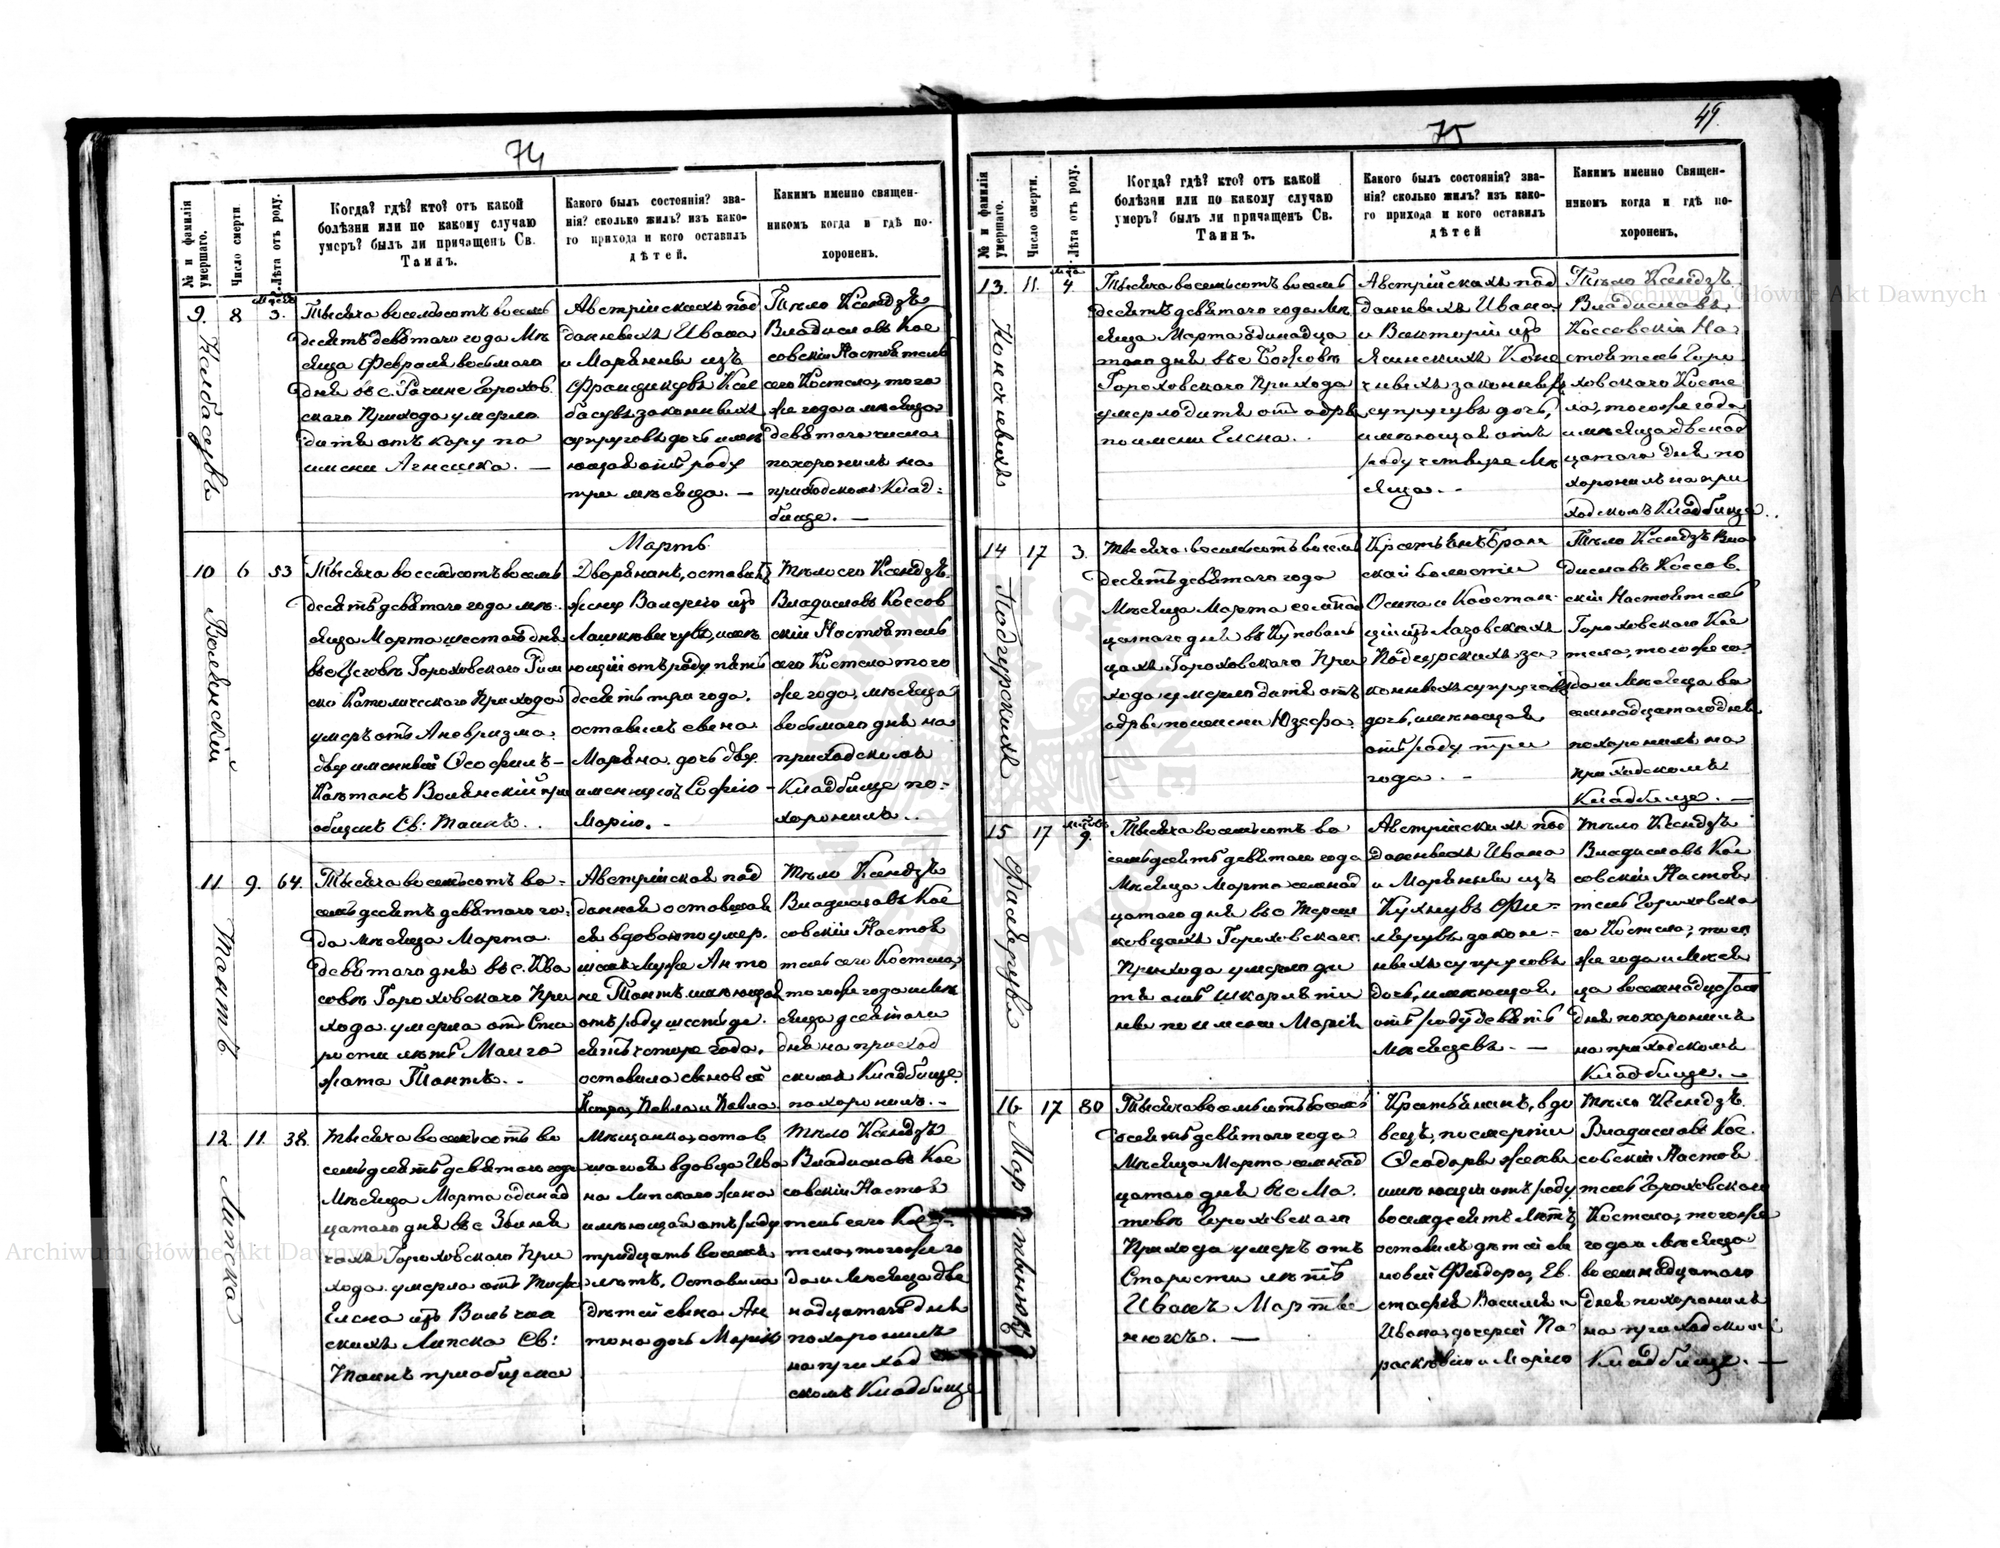 74
№ и фамилія умершаго.
Число смерти.
Лѣта отъ роду.
Когда? гдѣ? кто? отъ какой
болѣзни или по какому случаю
умеръ? былъ ли причащенъ Св.
Таинъ.
Какого былъ состоянія? зва-
нія? сколько жилъ? изъ како-
го прихода и кого оставилъ
дѣтей.
Какимъ именно священ-
никомъ когда и гдѣ по-
хороненъ.
9.
Калбасувъ
8
3.
Тысяча восемьсотъ восемь
десятъ девятого года Мѣ
сяца Февраля восьмого
дня въ с. Горохов
ского Прихода умерло
дитя отъ кору по
имени Агнешка. —
Австрійскихъ под
данныхъ Ивана
и Марянны изъ
Францишкувъ Кол
басувъ законныхъ
супруговъ дочь имѣ
ющая отъ роду
три мѣсяца. —
Тѣло Ксендзъ
Владиславъ Кос
совскій Настоятель
сего Костела, того
же года и мѣсяца
девятого числа
похоронилъ на
приходскомъ Клад-
бище. —
Мартъ
10
Волянский
6
53
Тысяча восемьсотъ восемь
десятъ девятого года мѣ-
сяца Марта шестого дня
Гороховского Рим
ско Католического Прихода
умеръ отъ Аневризма
двуименный Феофилъ-
Каетанъ Волянский при
общенъ Св: Таинъ.
Дворянинъ, оставилъ
жену Валерію изъ
имѣ
ющій отъ роду пять
десятъ три года.
оставилъ сына
Маряна дочь дву
именную Софію-
Марію. —
Тѣло его Ксендзъ
Владиславъ Коссов
скій Настоятель
сего Костела того
же года, мѣсяца
восьмого дня на
приходскомъ
Кладбище по-
хоронилъ.
11
Тантъ
9.
64.
Тысяча восемьсотъ во-
семьдесятъ девятого го-
да Мѣсяца Марта
девятого дня въ с. Ива
Гороховского При
хода умерла отъ Ста
рости лѣтъ Малго
жата Тантъ.
Австрійская под
данная оставшая
ся вдовою по умер
шемъ муже Анто
не Тантъ имѣющая
отъ роду шестьде
сятъ четыре года,
оставила сыновей
Петра, Павла и Павла
Тѣло Ксендзъ
Владиславъ Кос
совскій Настоя
тель сего Костела,
того же года и Мѣ
сяца десятого
дня на приход
скомъ Кладбище
похоронилъ. —
12
Липска
11.
38.
Тысяча восемьсотъ во
семьдесятъ девятого года
Мѣсяца Марта одинад
цатого дня въ с
Гороховского При
хода умерла отъ Тифа
Елена изъ
скихъ Липска Св:
Таинъ приобщена
Мѣщанка, остав
шаяся вдова Ива
на Липского жена
имѣющая отъ роду
тридцать восемь
лѣтъ, Оставила
дѣтей сына Ан
тона дочь Марію
Тѣло Ксендзъ
Владиславъ Кос
совскій Настоя
тель сего Кос-
тела, того же го
да и Мѣсяца две
надцатого дня
похоронилъ
на приход
скомъ Кладбище
49.
75
№ и фамилія умершаго.
Число смерти.
Лѣта отъ роду.
Когда? гдѣ? кто? отъ какой
болѣзни или по какому случаю
умеръ? былъ ли причащенъ Св.
Таинъ.
Какого былъ состоянія? зва-
нія? сколько жилъ? изъ како-
го прихода и кого оставилъ
дѣтей
Какимъ именно Священ-
никомъ когда и гдѣ по-
хороненъ.
13.
11.
4.
Тысяча восемьсотъ восемь
десятъ девятого года Мѣ
сяца Марта одинадца
того дня въ с
Гороховского Прихода
умерло дитя отъ одры
по имени Елена.
Австрійскихъ под
данныхъ Ивана
и Викторіи изъ
законныхъ
супругувъ дочь,
имѣющая отъ
роду четыре Мѣ
сяца. -
Тѣло Ксендзъ
Владиславъ
Коссовскій На
стоятель Горо
ховского Косте
ла, того же года
и мѣсяца двенад
цатого дня по
хоронилъ на при
ходскомъ Кладбище.
14
Подгурскихъ
17
3.
Тысяча восемьсотъ восемь
десятъ девятого года
Мѣсяца Марта семнад
цатого дня въ
цахъ Гороховского При
хода умерло дитя отъ
одры по имени Юзефа.
Крестьянъ Бран
ской волости
Осипа и Констан
ціи изъ Лазовскихъ
Подгурскихъ за
конныхъ супруговъ
дочь, имѣющая
отъ роду три
года. -
Тѣло Ксендзъ Вла
диславъ Коссов
скій Настоятель
Гороховского Кос
тела, того же го
да и Мѣсяца во
семнадцатого дня
похоронилъ на
приходскомъ
Кладбище. —
15
17
9.
Тысяча восемьсотъ во
семьдесятъ девятого года
Мѣсяца Марта семнад
цатого дня въ с
Гороховского
Прихода умерло ди
тя отъ шкарлятин
ны по имени Марія
Австрійскихъ под
данныхъ Ивана
и Марянны изъ
закон-
ныхъ супруговъ
дочь, имѣющая,
отъ роду девять
Мѣсяцевъ. —
Тѣло Ксендзъ
Владиславъ Кос
совскій Настоя
тель Гороховско
го Костела, того
же года и Мѣся
ца восемнадцатого
дня похоронилъ
на приходскомъ
Кладбище. -
16
Мартынюкъ
17
80
Тысяча восемьсотъ восемь
десятъ девятого года
Мѣсяца Марта семнад
цатого дня въ с Ма
Гороховского
Прихода умеръ отъ
Старости лѣтъ
Иванъ Марты
нюкъ. —
Крестьянинъ, вдо
вецъ, по смерти
Феодоры жены
имѣющій отъ роду
восемдесятъ лѣтъ,
оставилъ дѣтей сы
новей Феодора, Ев
стафія Василія и
Ивана, дочерей Па
раскевію и Марію
Тѣло Ксендзъ
Владиславъ Кос
совскій Настоя
тель Гороховского
Костела, того же
года и Мѣсяца
восемнадцатого
дня похоронилъ
на приходскомъ
Кладбище. —
Archiwum Główne Akt Dawnych
Archiwum Główne Akt Dawnych